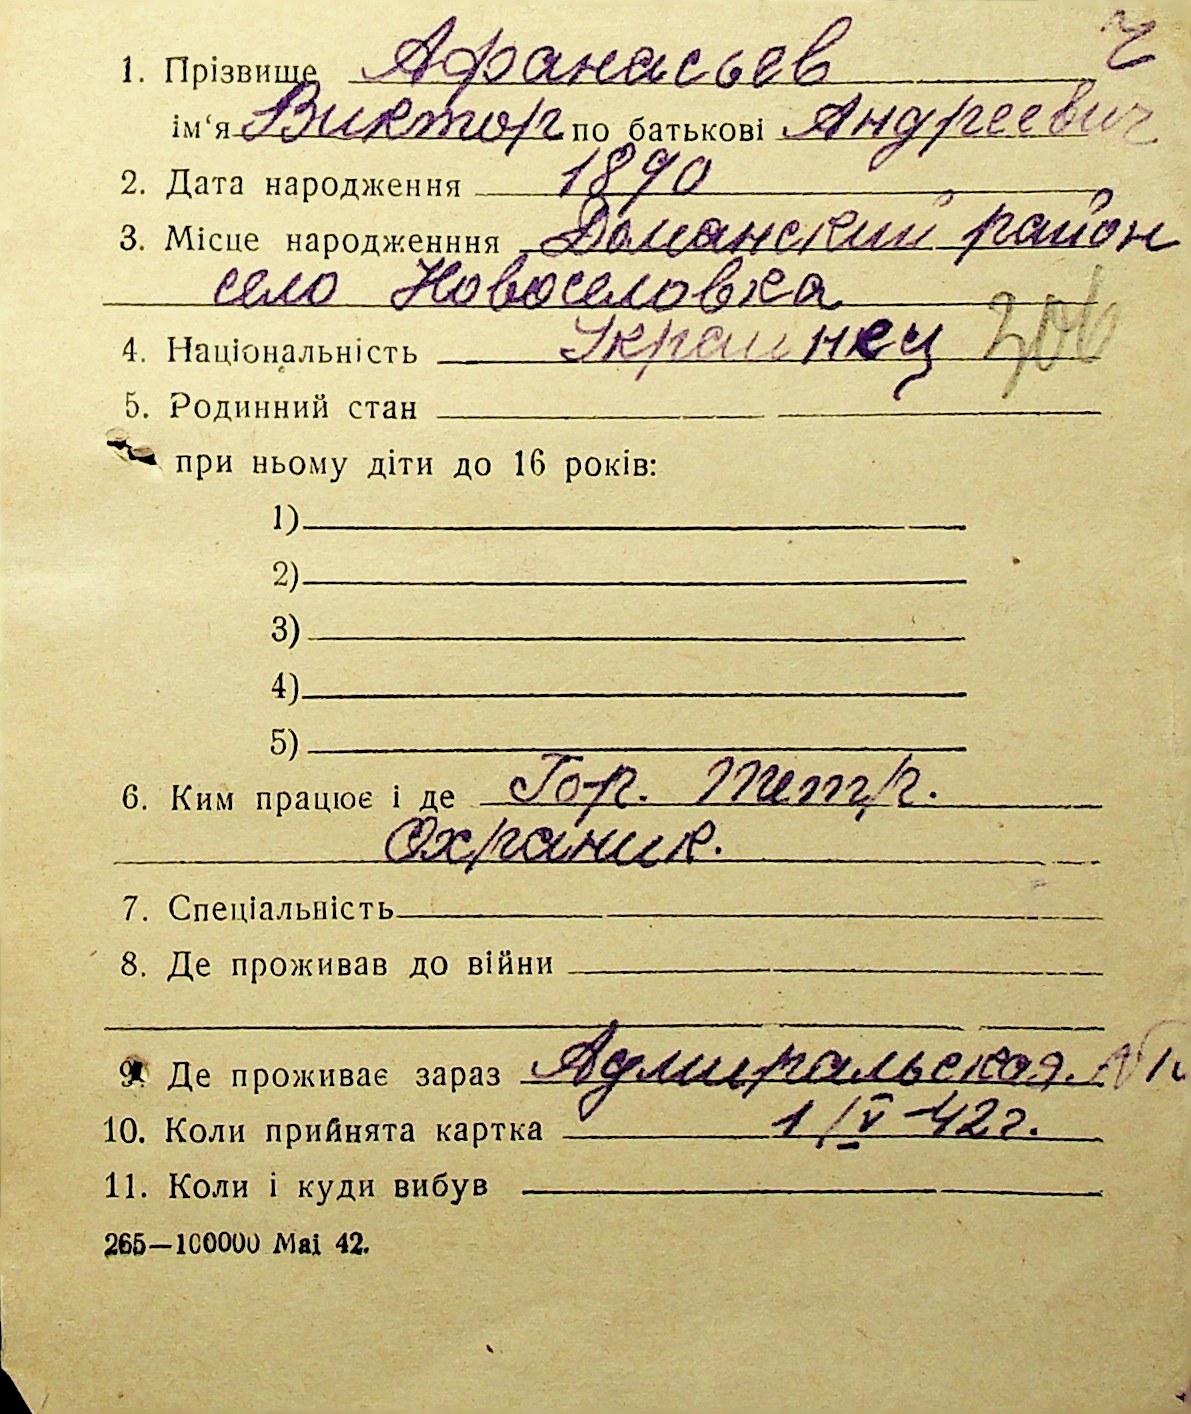 ч
1. Прізвище Афанасьев
ім‘я Виктор по батькові Андреевич
2. Дата народження 1890
3. Місце народженння Доманский район
село Новоселовка
4. Національність Украинец
5. Родинний стан
при ньому діти до 16 років:
1)
2)
3)
4)
5)
6. Ким працює і де Гор.
Охраник.
7. Спеціальність
8. Де проживав до війни
9. Де проживає зараз Адмиральская.
10. Коли прийнята картка 1/V-42г.
11. Коли і куди вибув
265—100000 Mai 42.